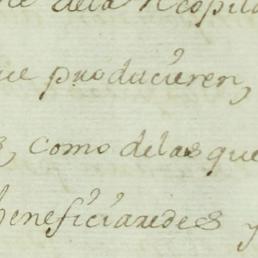 dela Recopila
que producieren,
s, como delas que
beneficiaredes y